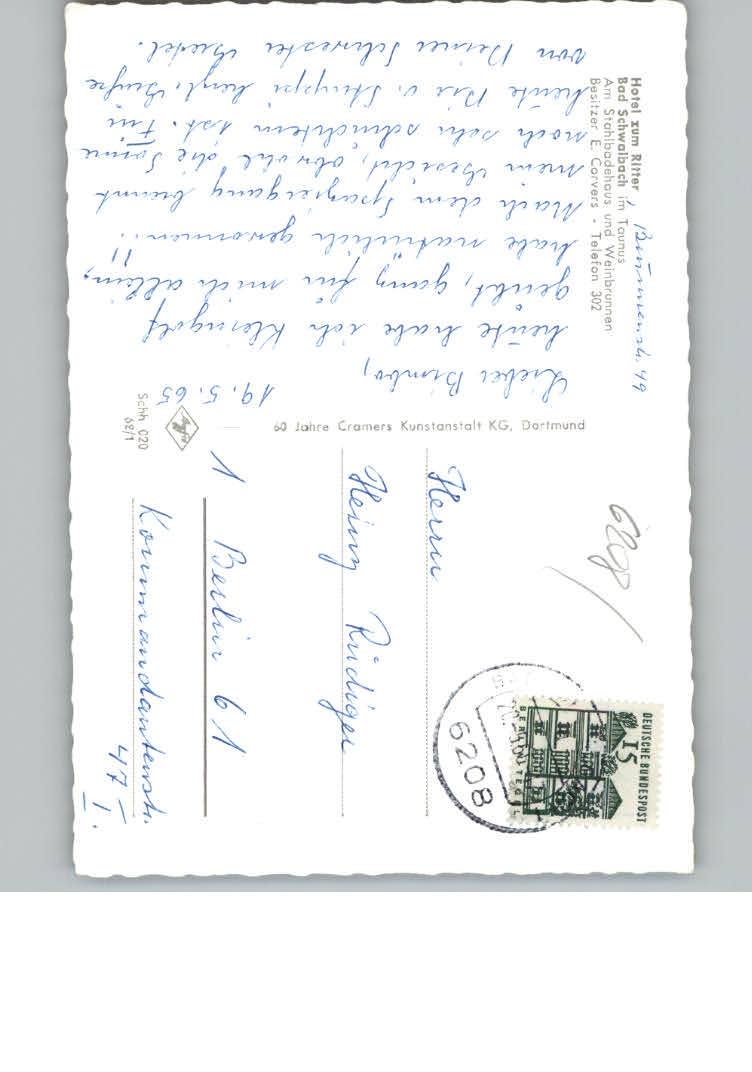 Hotel zum Ritter
Bad Schwalbach im Taunus
Am Stahlbadehaus und Weinbrunnen
Besitzer E. Corvers - Telefon 302
Brunnenstr. 49
19.5.65
Lieber Bimbo,
heute habe ich Kleingolf
geübt, ganz für mich allein,
habe natürlich gewonnen..!!
Nach dem Spaziergang brennt
mein Gesicht, obwohl die Sonne
noch sehr schüchtern ist. Für
heute Dir u. Stuppi herzl. Grüße
von Deiner Schwester
60 Jahre Cramers Kunstanstalt KG, Dortmund
Agfa
Schh 020
68/1
6208
DEUTSCHE BUNDESPOST
15
BERLIN-TEGEL
6208
Herrn
Heinz Rüdiger
1 Berlin 61
Kommandantenstr.
47 I.